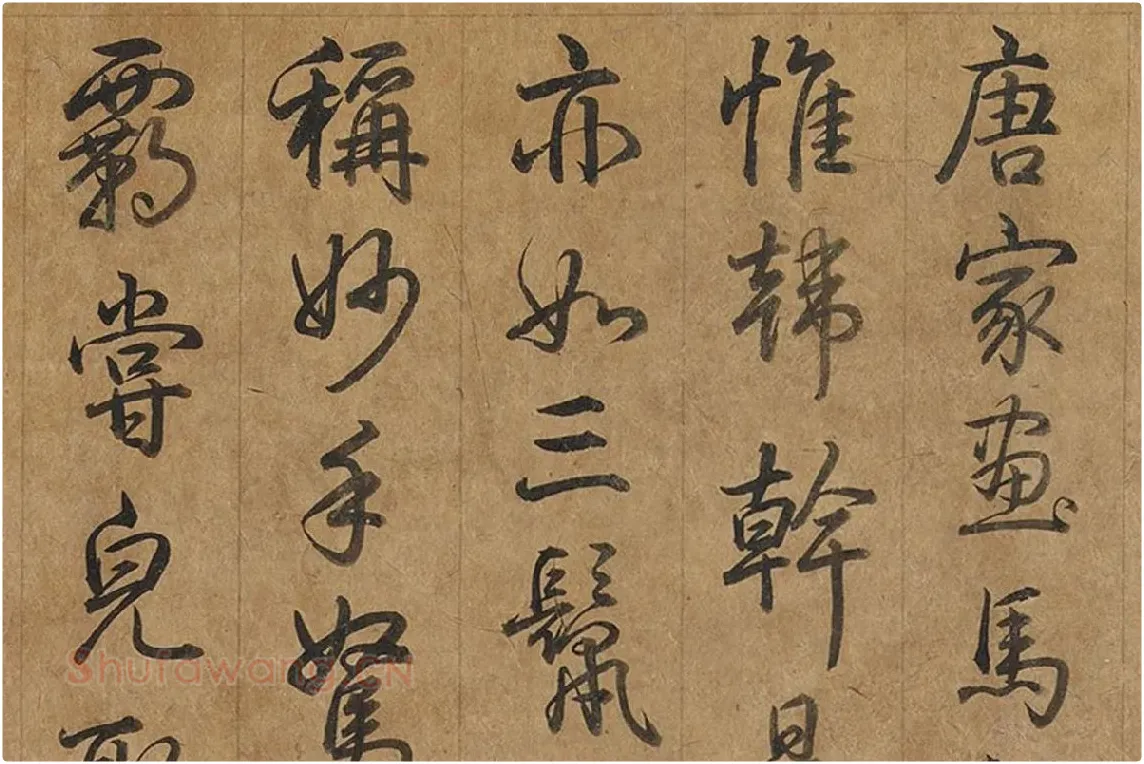 唐家畫馬
惟韓幹
亦如三鬣
稱妙手駑
覇甞皃
Shufawang.CN